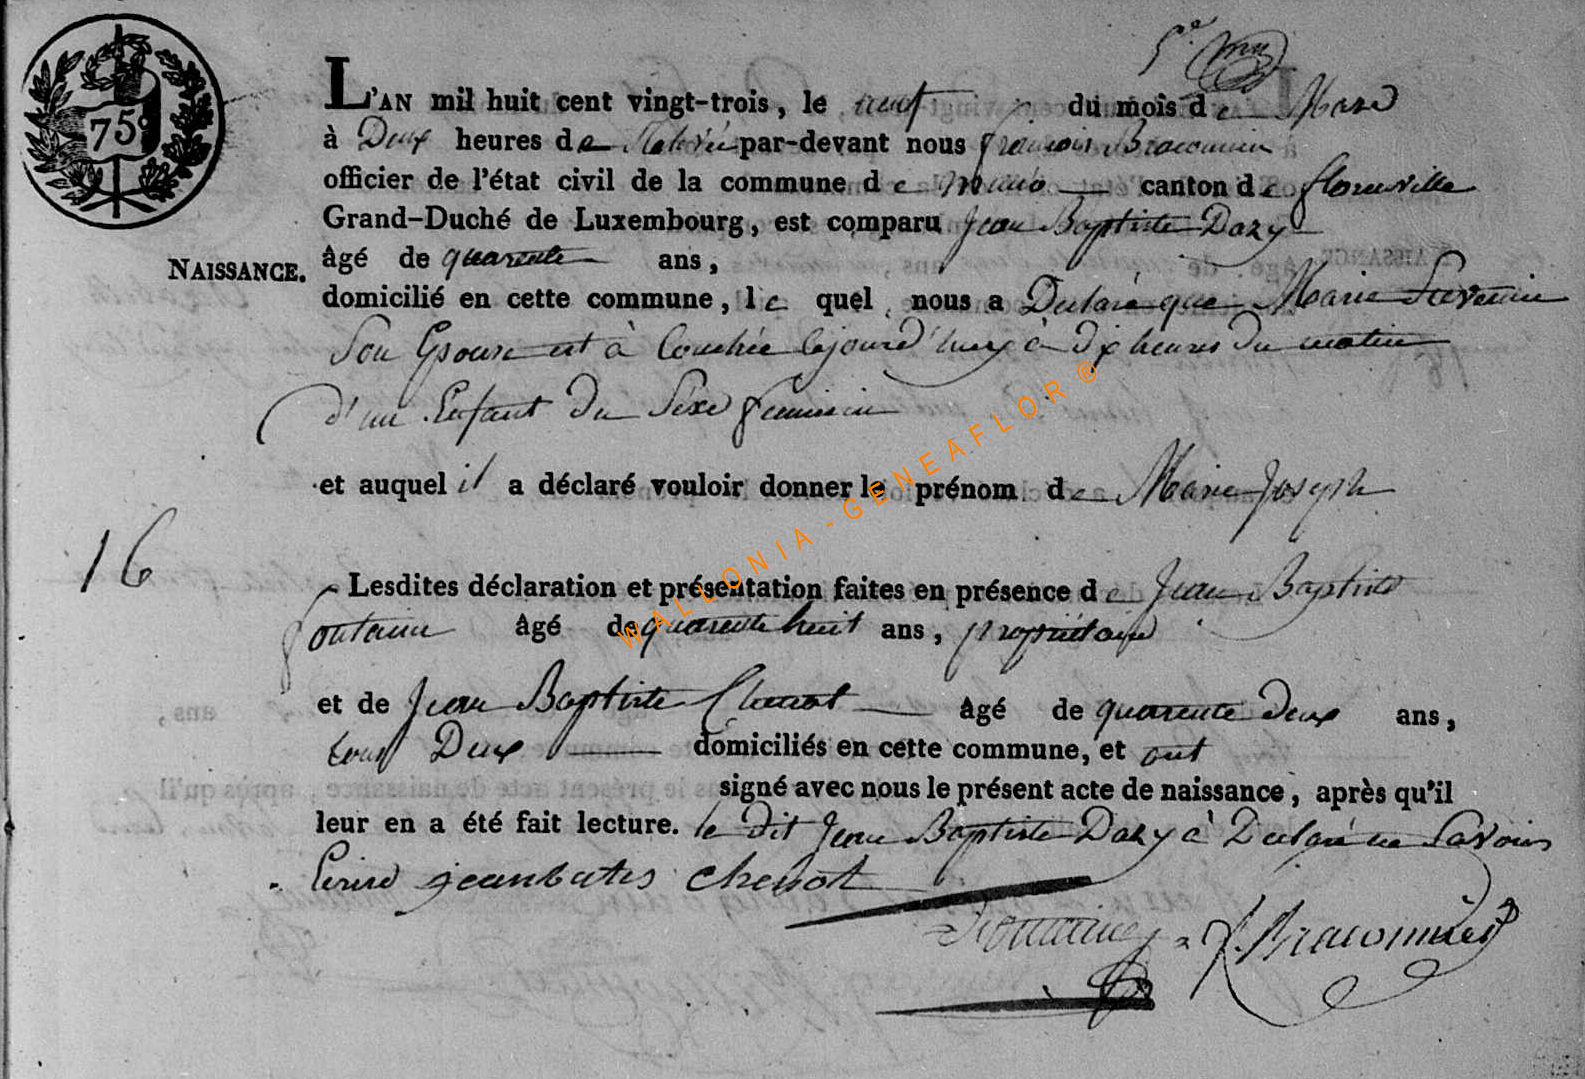 75c
5e
L'AN mil huit cent vingt-trois, le neuf du mois de Mars
à Deux heures de Relevée par-devant nous françois Braconnier
officier de l'état civil de la commune de canton de florenville
Grand-Duché de Luxembourg, est comparu Jean Baptiste Dazy
NAISSANCE.
âgé de quarente ans,
domicilié en cette commune, le quel nous a Declaré que Marie Laverine
Son Epouse est à Couchée cejourd'huy à dix heures du matin
d'un Enfant du Sexe feminin
et auquel il a déclaré vouloir donner le prénom de Marie Joseph
16
Lesdites déclaration et présentation faites en présence de Jean Baptiste
fontaine âgé de quarente huit ans, propriétaire
et de Jean Baptiste Chenot âgé de quarente deux ans,
tous Deux domiciliés en cette commune, et ont
signé avec nous le présent acte de naissance, après qu'il
leur en a été fait lecture. le dit Jean Baptiste Dazy à Declaré ne Savoir
Ecrire jeanbatis chenot
fontaine f. Braconnier
WALLONIA-GENEAFLOR ®